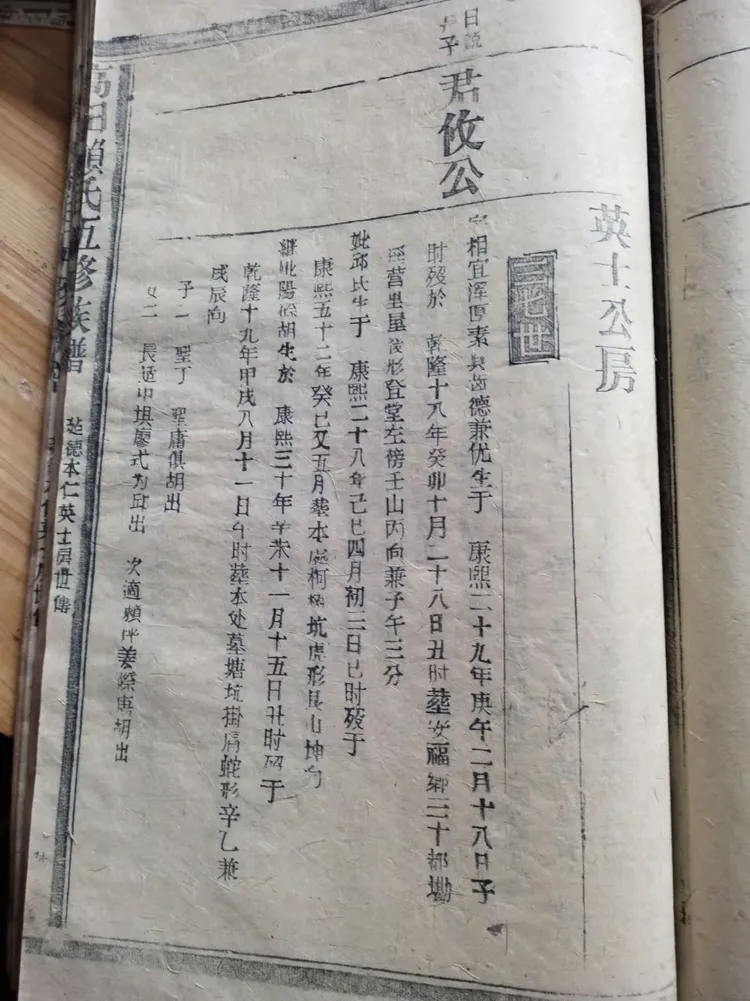 英士公房
三七世
日
子
君攸公
相宜浑厚素具齿德兼优生于 康熙二十九年庚午二月十八日子
时殁於 乾隆十八年癸卯十月二十八日丑时墓安福乡三十都坳
营里屋后形登堂左傍壬山丙向兼子午三分
妣邱氏生于 康熙二十八年己巳四月初三日巳时殁于
康熙五十二年癸巳又五月葬本处柯树坑虎形艮山坤向
继妣阳候胡生於 康熙三十年辛未十一月十五日丑时殁于
乾隆十九年甲戌八月十一日午时葬本处墓塘坑掛肩蛇形辛乙兼
戌辰向
子一 圣丁 圣庸俱胡出
女二 長适中埧廖式为邱出 次適赖坪姜 唐胡出
高田赖氏五修族譜
德本仁英士房世傳